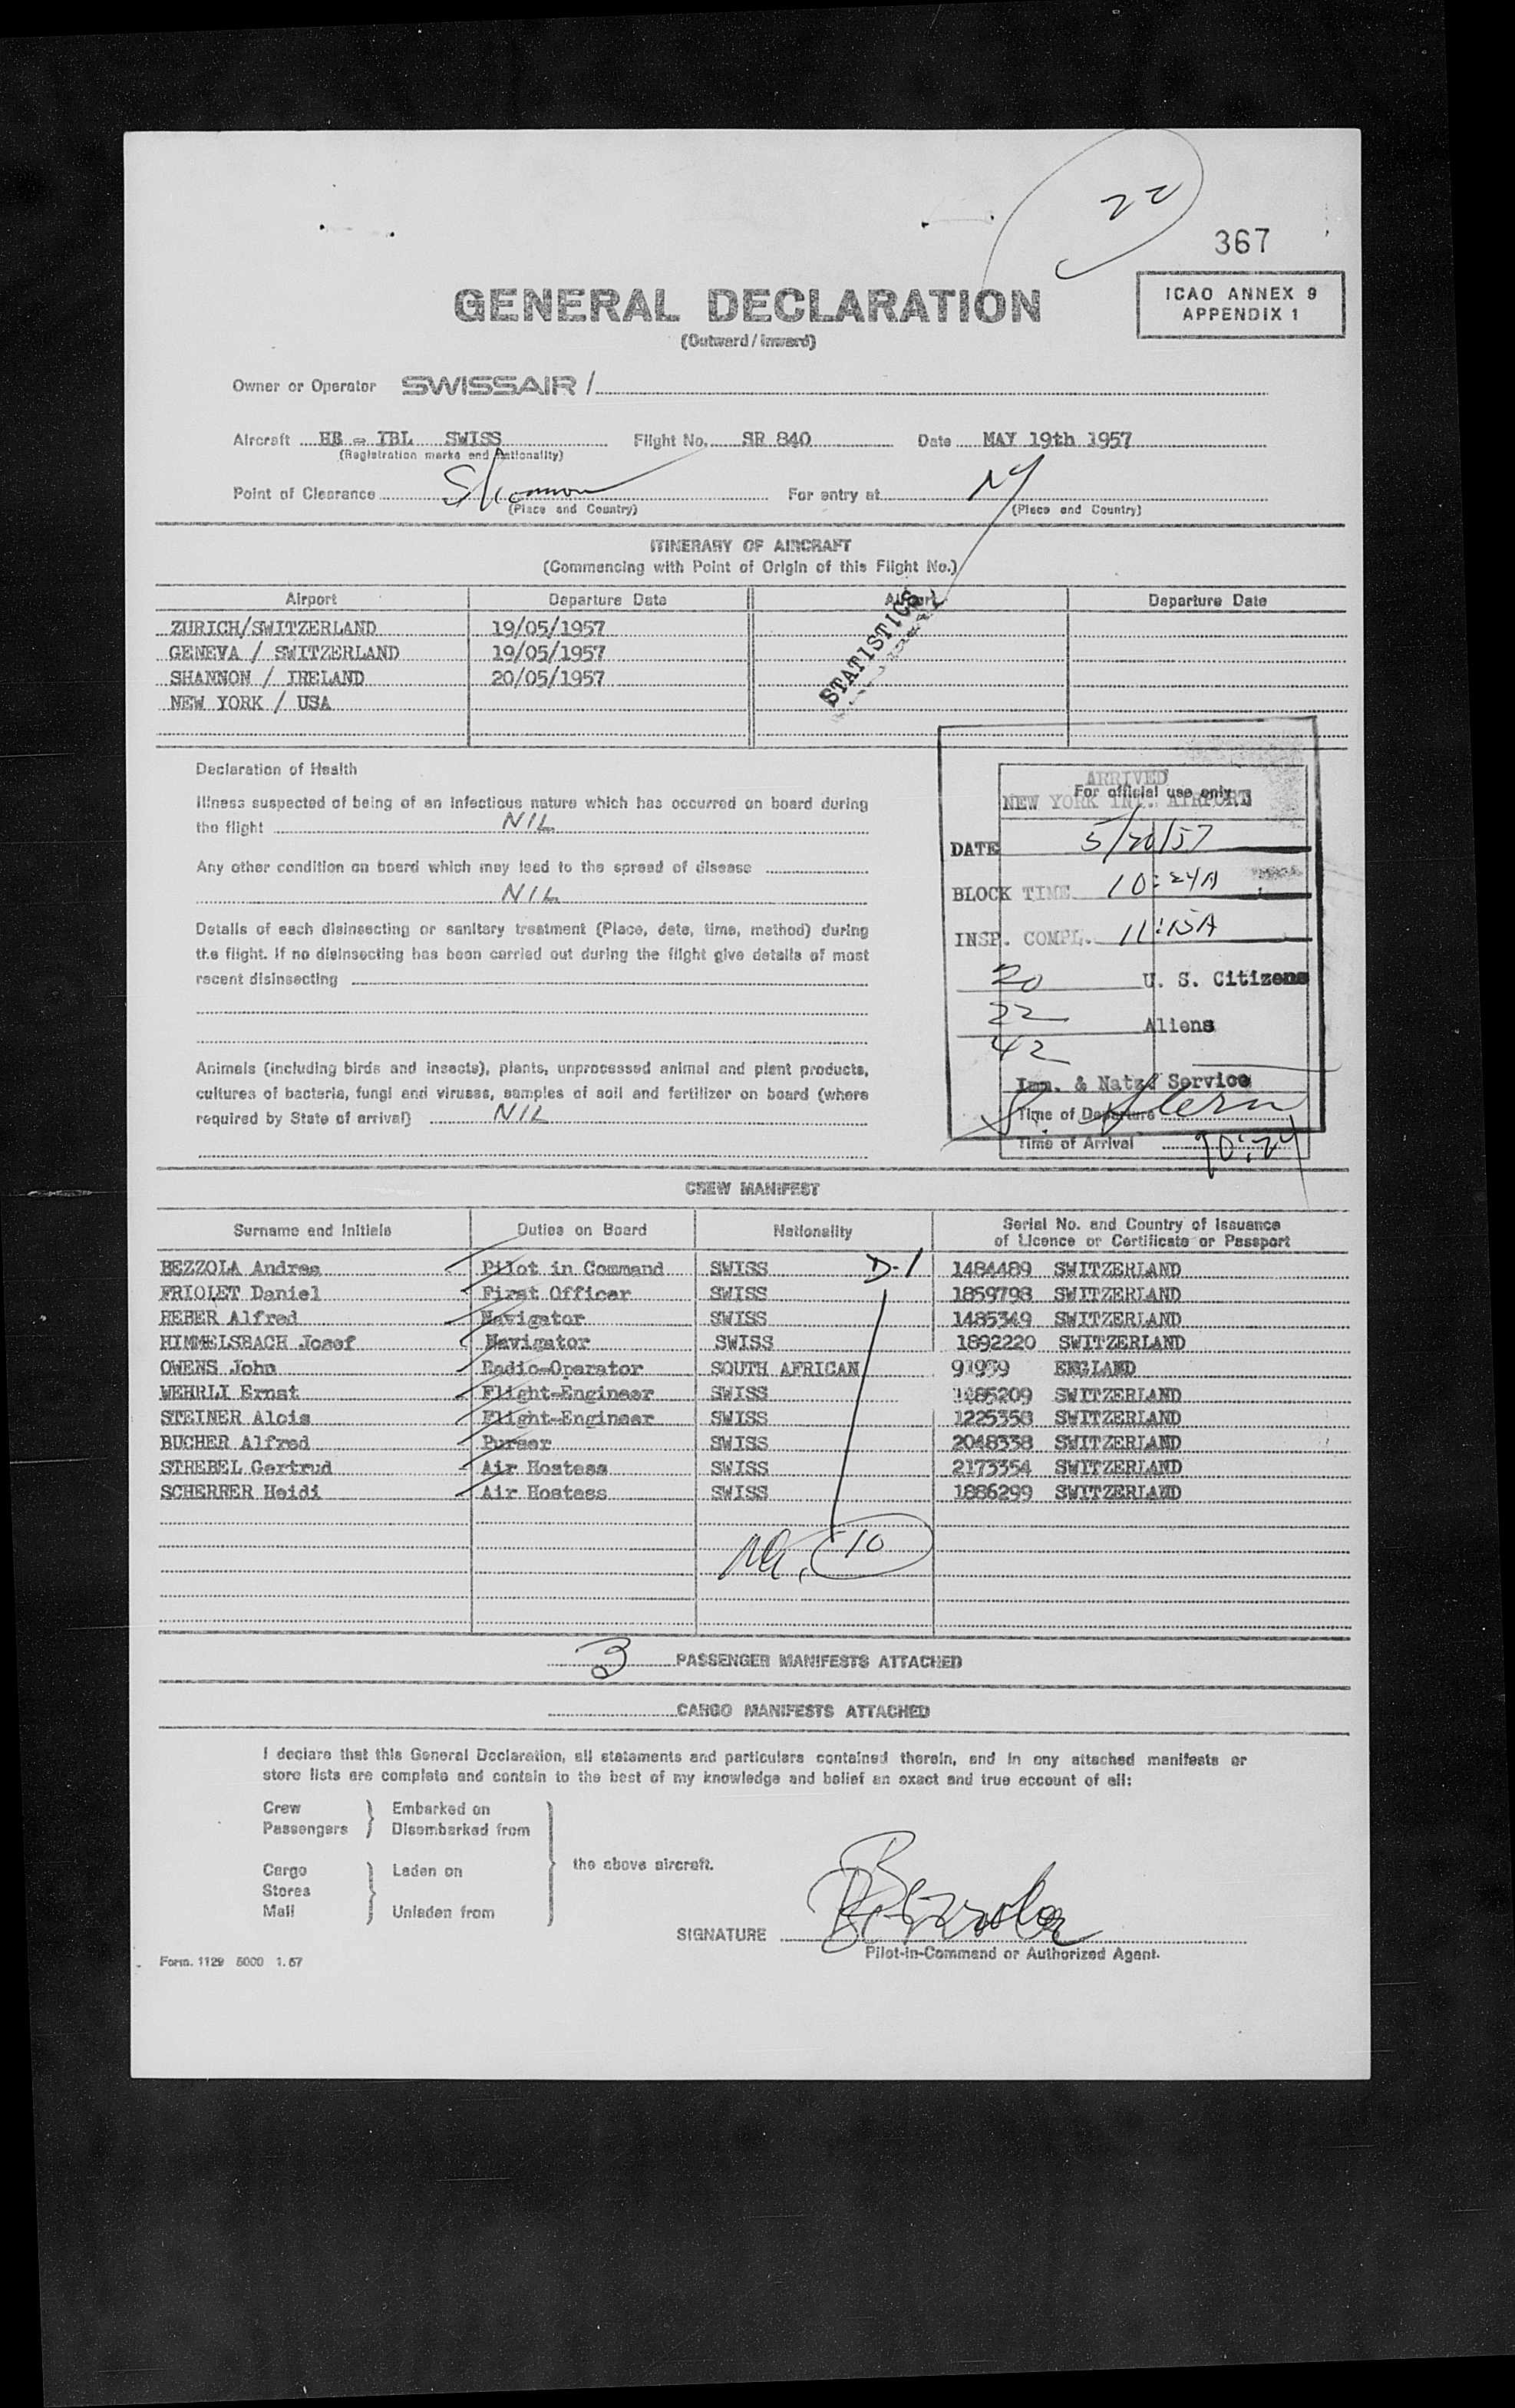 22
367
GENERAL DECLARATION
(Outward / inward)
ICAO ANNEX 9
APPENDIX 1
Owner or Operator SWISSAIR /
Aircraft HB - IBL SWISS Flight No. SR 840 Date MAY 19th 1957
(Registration marks and nationality)
Point of Clearance Shannon For entry at NY
(Place and Country) (Place and Country)
ITINERARY OF AIRCRAFT
(Commencing with Point of Origin of this Flight No.)
Airport Departure Date Airport Departure Date
ZURICH/SWITZERLAND 19/05/1957
GENEVA / SWITZERLAND 19/05/1957
SHANNON / IRELAND 20/05/1957
NEW YORK / USA
STATISTICS
Declaration of Health
Illness suspected of being of an infectious nature which has occurred on board during
the flight NIL
Any other condition on board which may lead to the spread of disease
NIL
Details of each disinsecting or sanitary treatment (Place, date, time, method) during
the flight. If no disinsecting has been carried out during the flight give details of most
recent disinsecting
Animals (including birds and insects), plants, unprocessed animal and plant products,
cultures of bacteria, fungi and viruses, samples of soil and fertilizer on board (where
required by State of arrival) NIL
ARRIVED
For official use only
NEW YORK INT. AIRPORT
DATE 5/20/57
BLOCK TIME 10:24A
INSP. COMPL. 11:15A
20 U. S. Citizens
22 Aliens
42
Imm. & Natz. Service
Time of Departure
S. Stern
Time of Arrival 10:24
CREW MANIFEST
Surname and Initials Duties on Board Nationality Serial No. and Country of Issuance
of Licence or Certificate or Passport
BEZZOLA Andrea Pilot in Command SWISS D-1 1484489 SWITZERLAND
FRIOLET Daniel First Officer SWISS 1859798 SWITZERLAND
REBER Alfred Navigator SWISS 1485349 SWITZERLAND
HIMMELSBACH Josef Navigator SWISS 1892220 SWITZERLAND
OWENS John Radio-Operator SOUTH AFRICAN 91959 ENGLAND
WEHRLI Ernst Flight-Engineer SWISS 1485209 SWITZERLAND
STEINER Alois Flight-Engineer SWISS 1225358 SWITZERLAND
BUCHER Alfred Purser SWISS 2048338 SWITZERLAND
STREBEL Gertrud Air Hostess SWISS 2173354 SWITZERLAND
SCHERRER Heidi Air Hostess SWISS 1886299 SWITZERLAND
10
3 PASSENGER MANIFESTS ATTACHED
CARGO MANIFESTS ATTACHED
I declare that this General Declaration, all statements and particulars contained therein, and in any attached manifests or
store lists are complete and contain to the best of my knowledge and belief an exact and true account of all:
Crew Embarked on
Passengers Disembarked from
the above aircraft.
Cargo Laden on
Stores
Mail Unladen from
SIGNATURE Bezzola
Pilot-in-Command or Authorized Agent.
Form. 1129 5000 1.57